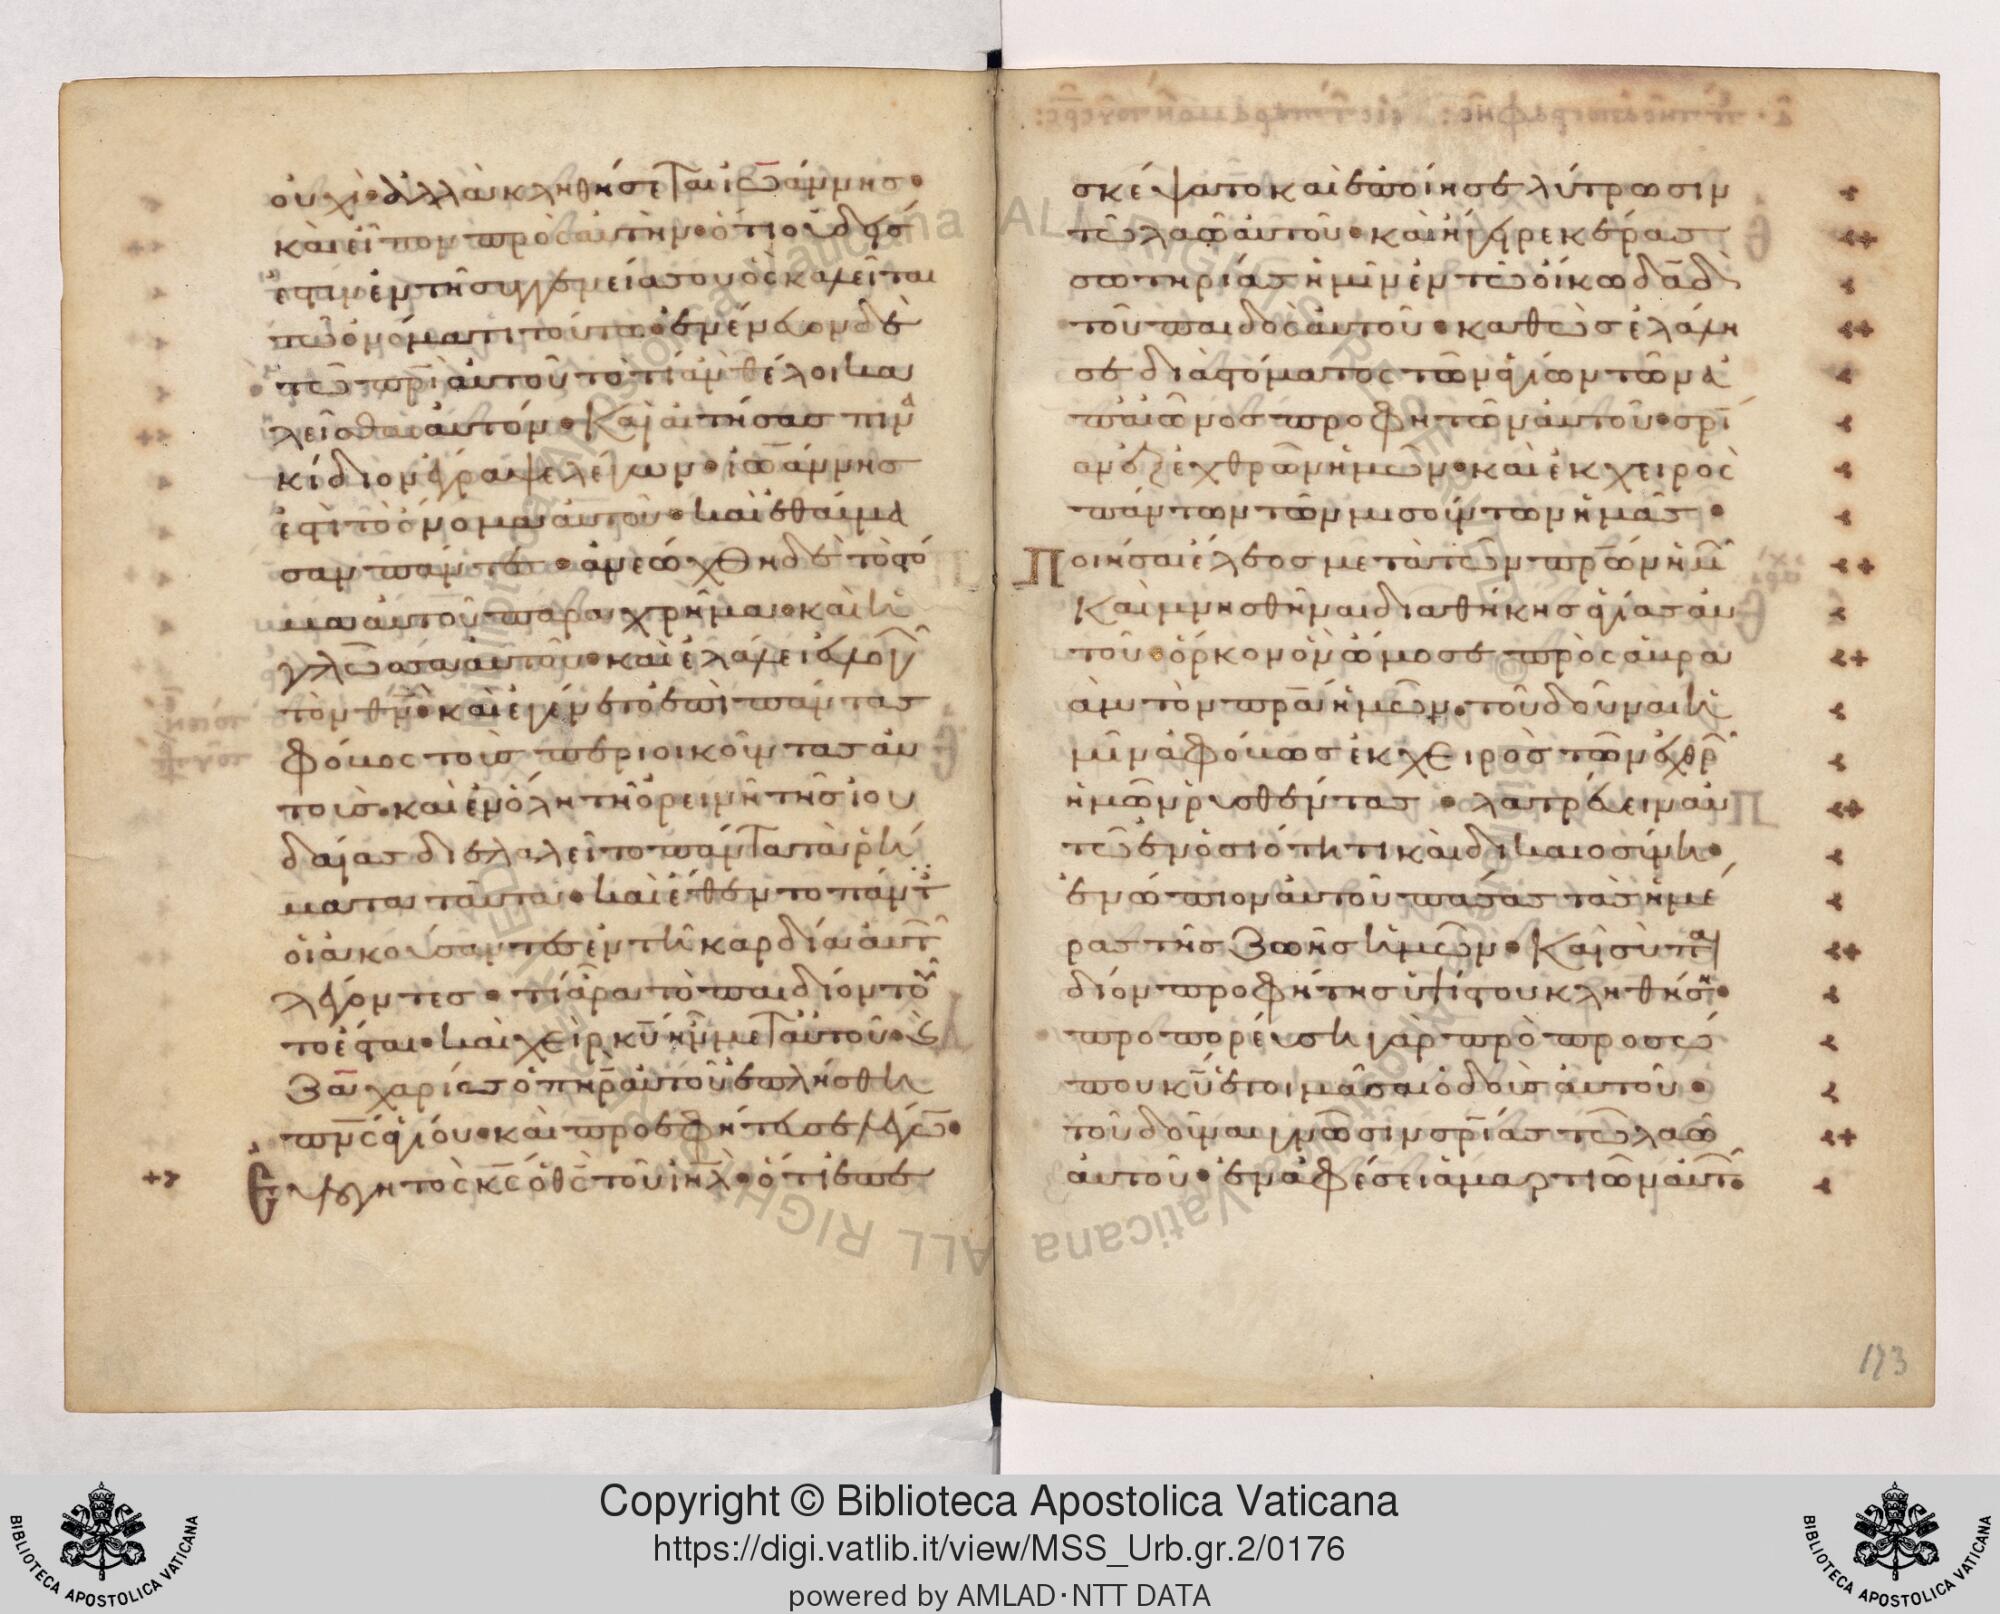 οὐχὶ· ἀλλὰ κληθήσεται ἰω̅άννησ·
καὶ εἶπον πρὸς αὐτὴν· ὅτι οὐδείσ
ἐστιν ἐν τῇ συγγενείᾳ σου ὃς καλεῖται
τῶ ὀνόματι τούτω· ἐνένευον δὲ
τῶ πρι̅ αὐτοῦ τὸ τί ἂν θέλοι κα
λεῖσθαι αὐτόν· Καὶ αἰτήσασ πινα
κίδιον ἔγραψε λέγων· ἰω̅άννησ
ἐστὶ τὸ ὄνομα αὐτοῦ· καὶ ἐθαύμα
σαν πάντεσ· ἀνεώχθη δὲ τὸ στό
μα αὐτοῦ παραχρῆμα· καὶ ἡ
γλῶσσα αὐτοῦ· καὶ ἐλάλει εὐλογῶν
τὸν θν̅· καὶ ἐγένετο ἐπὶ πάντασ
φόβος τοὺσ περιοικοῦντασ αὐ
τούσ· καὶ ἐν ὅλη τῆ ὀρεινῆ τῆσ ἰου
δαίασ διελαλεῖτο πάντα τὰ ῥή
ματα ταῦτα· καὶ ἔθεντο πάντεσ
οἱ ἀκούσαντεσ ἐν τῆ καρδία αὐτῶν
λέγοντεσ· τί ἄρα τὸ παιδίον τοῦ
το ἔσται· καὶ χεὶρ κυ̅ ἦν μετ αὐτοῦ· καὶ
Ζαχαρίασ ὁ πηρ̅ αὐτοῦ ἐπλήσθη
πνς̅ ἁγίου· καὶ προεφήτευσε λέγων·
Εὐλογητὸς κς̅ ὁ θς̅ τοῦ ιηλ̅· ὅτι ἐπε
σκέψατο καὶ ἐποίησε λύτρωσιν
τῶ λαῶ αὐτοῦ· καὶ ἤγειρε κέρασ
σωτηρίασ ἡμῖν ἐν τῶ οἴκω δαδ̅
τοῦ παιδὸς αὐτοῦ· καθὼσ ἐλάλη
σε διὰ στόματος τῶν ἁγίων τῶν ἀ
π αἰῶνοσ προφητῶν αὐτοῦ· σρι̅
αν ἐξ ἐχθρῶν ἡμῶν· καὶ ἐκ χειρὸς
πάντων τῶν μισούντων ἡμᾶσ·
Ποιῆσαι ἔλεοσ μετὰ τῶν πρω̅ν ἡμῶν
Καὶ μνησθῆναι διαθήκησ ἁγίασ αὐ
τοῦ· ὅρκον ὃν ὤμοσε πρὸς ἀβρα
ὰμ τὸν πρα̅ ἡμῶν· τοῦ δοῦναι ἡ
μῖν ἀφόβωσ ἐκ χειρὸς τῶν ἐχθρῶν
ἡμῶν ῥυσθέντασ· λατρεύειν αὐ
τῶ ἐν ὁσιότητι καὶ δικαιοσύνη·
ἐνώπιον αὐτοῦ πάσασ τὰσ ἡμέ
ρασ τῆσ ζωῆσ ἡμῶν· Καὶ σὺ παι
δίον προφήτησ ὑψίστου κληθήση·
προπορεύση γὰρ πρὸ προσώ
που κυ̅ ἑτοιμᾶσαι ὁδοὺσ αὐτοῦ·
τοῦ δοῦναι γνῶσιν σρι̅ασ τῶ λαῶ
αὐτοῦ· ἐν ἀφέσει ἁμαρτιῶν αὐτῶν·
173
Copyright © Biblioteca Apostolica Vaticana
https://digi.vatlib.it/view/MSS_Urb.gr.2/0176
powered by AMLAD·NTT DATA
BIBLIOTECA APOSTOLICA VATICANA
BIBLIOTECA APOSTOLICA VATICANA